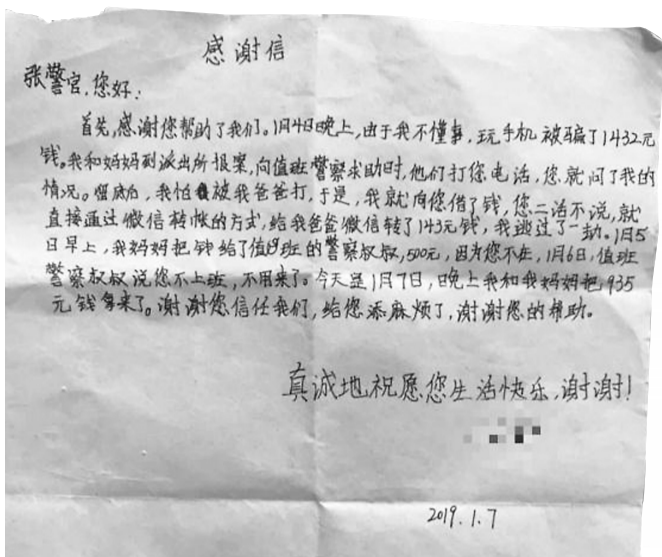 感谢信
张警官，您好：
首先，感谢您帮助了我们。1月4日晚上，由于我不懂事，玩手机被骗了1432元
钱。我和妈妈到派出所报案，向值班警察求助时，他们打您电话，您就问了我的
情况。然后，我怕被我爸爸打，于是，我就向您借了钱，您二话不说，就
直接通过微信转帐的方式，给我爸爸微信转了143元钱，我逃过了一劫。1月5
日早上，我妈妈把钱给了值班的警察叔叔，500元，因为您不在，1月6日，值班
警察叔叔说您不上班，不用来了。今天是1月7日，晚上我和我妈妈把935
元钱拿来了。谢谢您信任我们，给您添麻烦了，谢谢您的帮助。
真诚地祝愿您生活快乐，谢谢！
2019.1.7